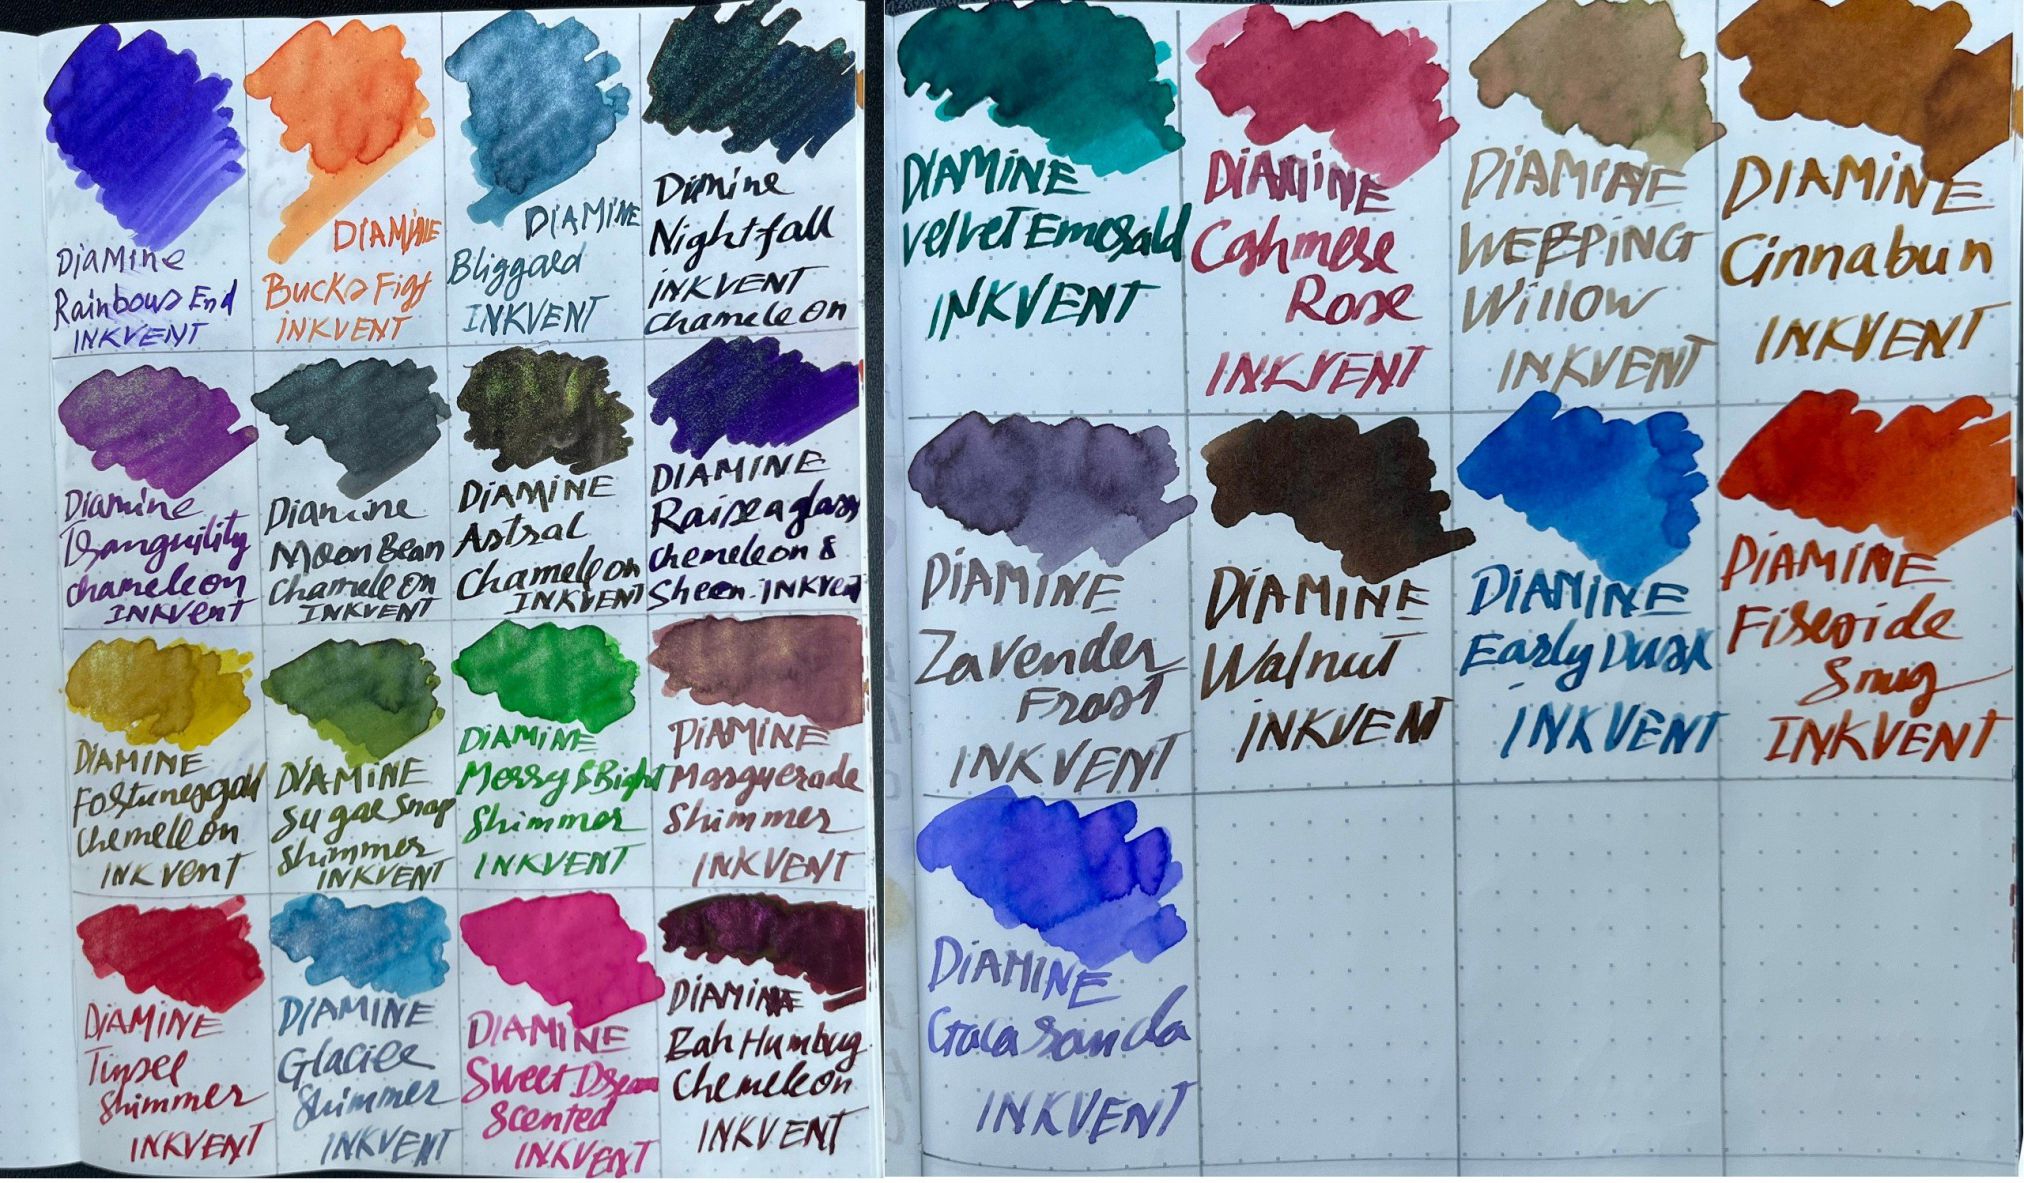 Diamine
Rainbows End
INKVENT
DIAMINE
Bucks Fist
INKVENT
DIAMINE
Bliggard
INKVENT
Diamine
Nightfall
INKVENT
Chameleon
Diamine
Tranquility
chameleon
INKVENT
Diamine
Moon Bean
Chameleon
INKVENT
DIAMINE
Astral
Chameleon
INKVENT
DIAMINE
Raise a glass
chemeleon &
Sheen INKVENT
DIAMINE
Fortunesgold
Chemeleon
INKVENT
DIAMINE
Sugar Snap
Shimmer
INKVENT
DIAMINE
Merry & Bright
Shimmer
INKVENT
DIAMINE
Masquerade
Shimmer
INKVENT
DIAMINE
Tinsel
Shimmer
INKVENT
DIAMINE
Glacier
Shimmer
INKVENT
DIAMINE
Sweet Dream
Scented
INKVENT
DIAMINE
Bah Humbug
Chemeleon
INKVENT
DIAMINE
Velvet Emerald
INKVENT
DIAMINE
Cashmere
Rose
INKVENT
DIAMINE
WEEPING
Willow
INKVENT
DIAMINE
Cinnabun
INKVENT
DIAMINE
Lavender
Frost
INKVENT
DIAMINE
Walnut
INKVENT
DIAMINE
Early Dusk
INKVENT
DIAMINE
Fireside
Snug
INKVENT
DIAMINE
INKVENT